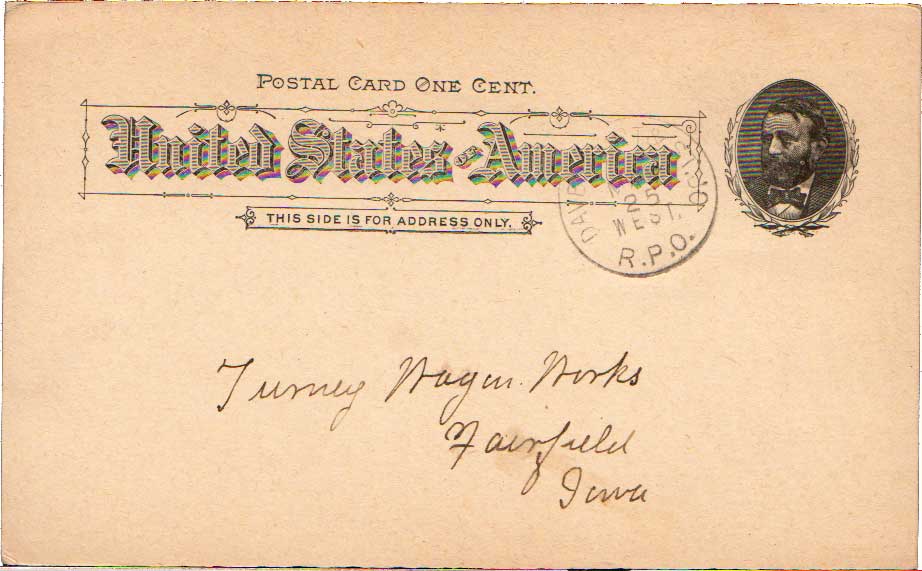 POSTAL CARD ONE CENT.
United States of America
THIS SIDE IS FOR ADDRESS ONLY.
25
WEST.
R.P.O.
Turney Wagon Works
Fairfield
Iowa